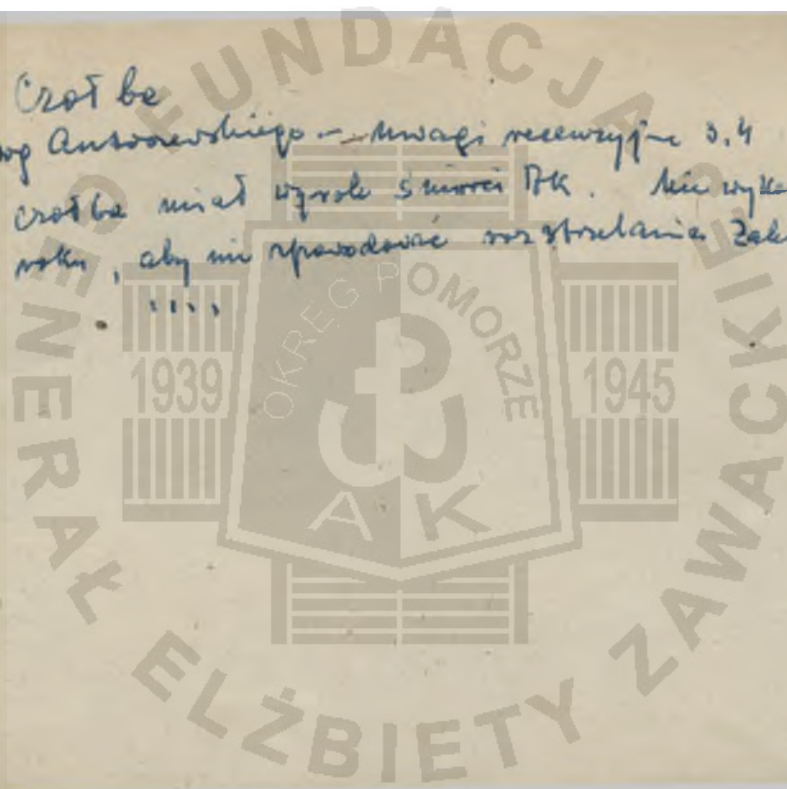 Czołba
wg Antoszewskiego – Uwagi recenzyjne s. 4
Czołba miał wyrok śmierci AK. Nie wyk
roku, aby nie spowodować rozstrzelania Zak
....
FUNDACJA
GENERAŁ ELŻBIETY ZAWACKIEJ
OKRĘG POMORZE
1939
1945
AK